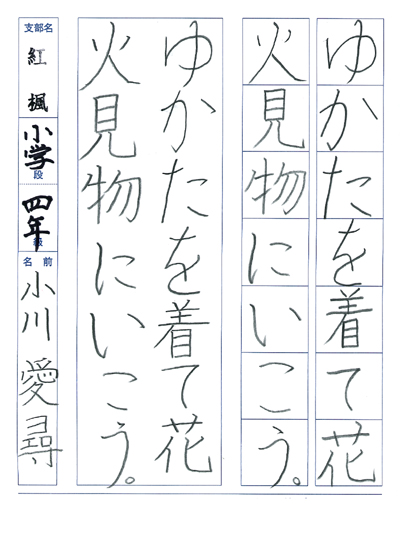 ゆかたを着て花
火見物にいこう。
ゆかたを着て花
火見物にいこう。
支部名
紅楓
小学
段
四年
級
名前
小川愛尋